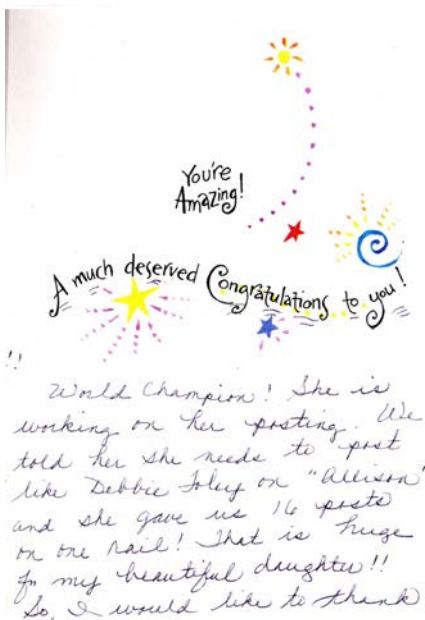 You're
Amazing!
A much deserved Congratulations to you!
!!
World Champion! She is
working on her posting. We
told her she needs to post
like Debbie Foley on "Allison"
and she gave us 16 posts
on one rail! That is huge
for my beautiful daughter!!
So, I would like to thank